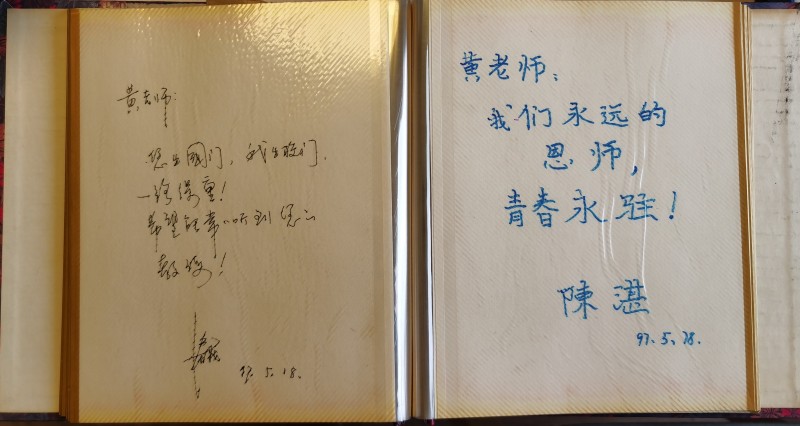 黄老师:
您出国门，我出校门，
一路保重！
希望能常听到您的
教诲！
97.5.18.
黄老师：
我们永远的
恩师，
青春永驻！
陳湛
97.5.18.